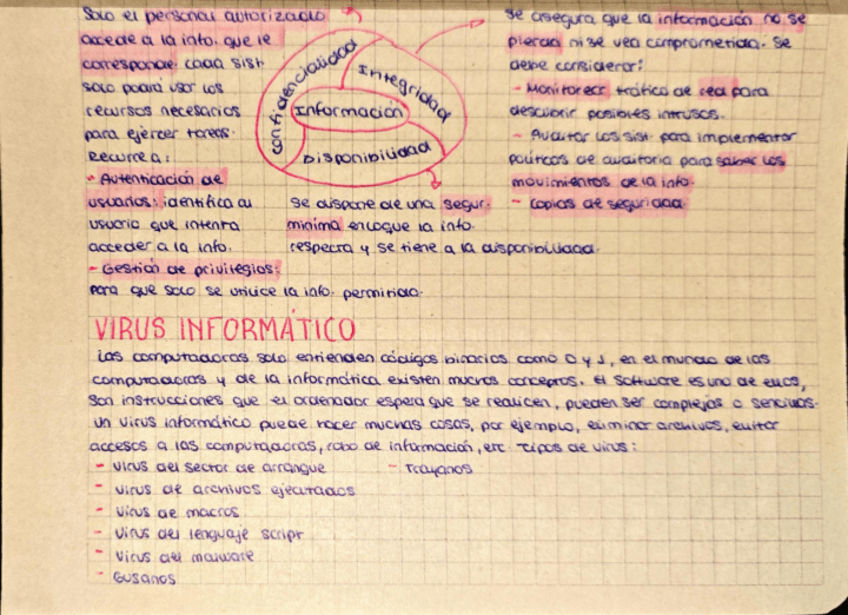 Solo el personal autorizado
accede a la info. que le
corresponde. cada sist.
solo podrá usar los
recursos necesarios
para ejercer tareas.
Recurre a:
- Autenticación de
usuarios: identifica al
usuario que intenta
acceder a la info.
- Gestión de privilegios:
para que solo se utilice la info. permitida.
Confidencialidad
Integridad
Información
Disponibilidad
se dispone de una segur.
mínima en loque la info.
respecta y se tiene a la disponibilidad.
se asegura que la información no se
pierda ni se vea comprometida. Se
debe considerar:
- Monitorear tráfico de red para
descubrir posibles intrusos.
- Auditar los sist. para implementar
políticas de auditoria para saber los
movimientos de la info.
- Copias de seguridad
VIRUS INFORMÁTICO
Las computadoras solo entienden códigos binarios como 0 y 1, en el mundo de las
computadoras y de la informática existen muchos conceptos. El software es uno de ellos,
son instrucciones que el ordenador espera que se realicen, pueden ser complejas o sencillas.
un virus informático puede hacer muchas cosas, por ejemplo, eliminar archivos, evitar
accesos a las computadoras, robo de información, etc. Tipos de virus:
- virus del sector de arranque
- virus de archivos ejecutados
- virus de macros
- virus del lenguaje script
- virus del malware
- Gusanos
- Troyanos